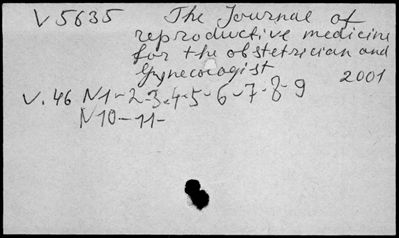 V 5635 The Journal of
reproductive medicine
for the obstetrician and
Gynecologist
2001
V. 46 N1-2-3-4-5-6-7-8-9
N10-11-